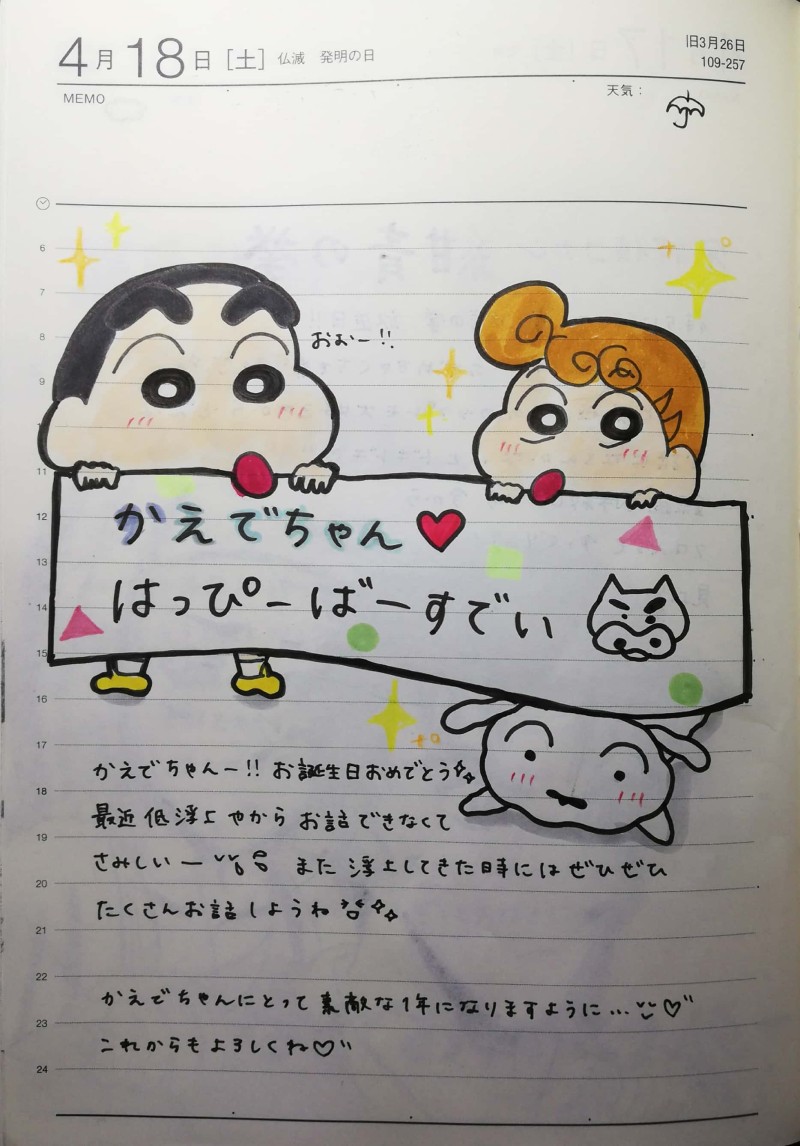 4月18日［土］ 仏滅 発明の日
旧3月26日
109-257
MEMO
天気：
6
7
8
おおー!!
9
10
11
12
かえでちゃん♥
13
はっぴーばーすでい
14
15
16
17
かえでちゃんー!! お誕生日おめでとう✧✧
18
最近低浮上やから お話できなくて
19
さみしいー また浮上してきた時にはぜひぜひ
20
たくさんお話しようね ✧✧
21
22
かえでちゃんにとって素敵な1年になりますように…♡
23
これからもよろしくね♡
24